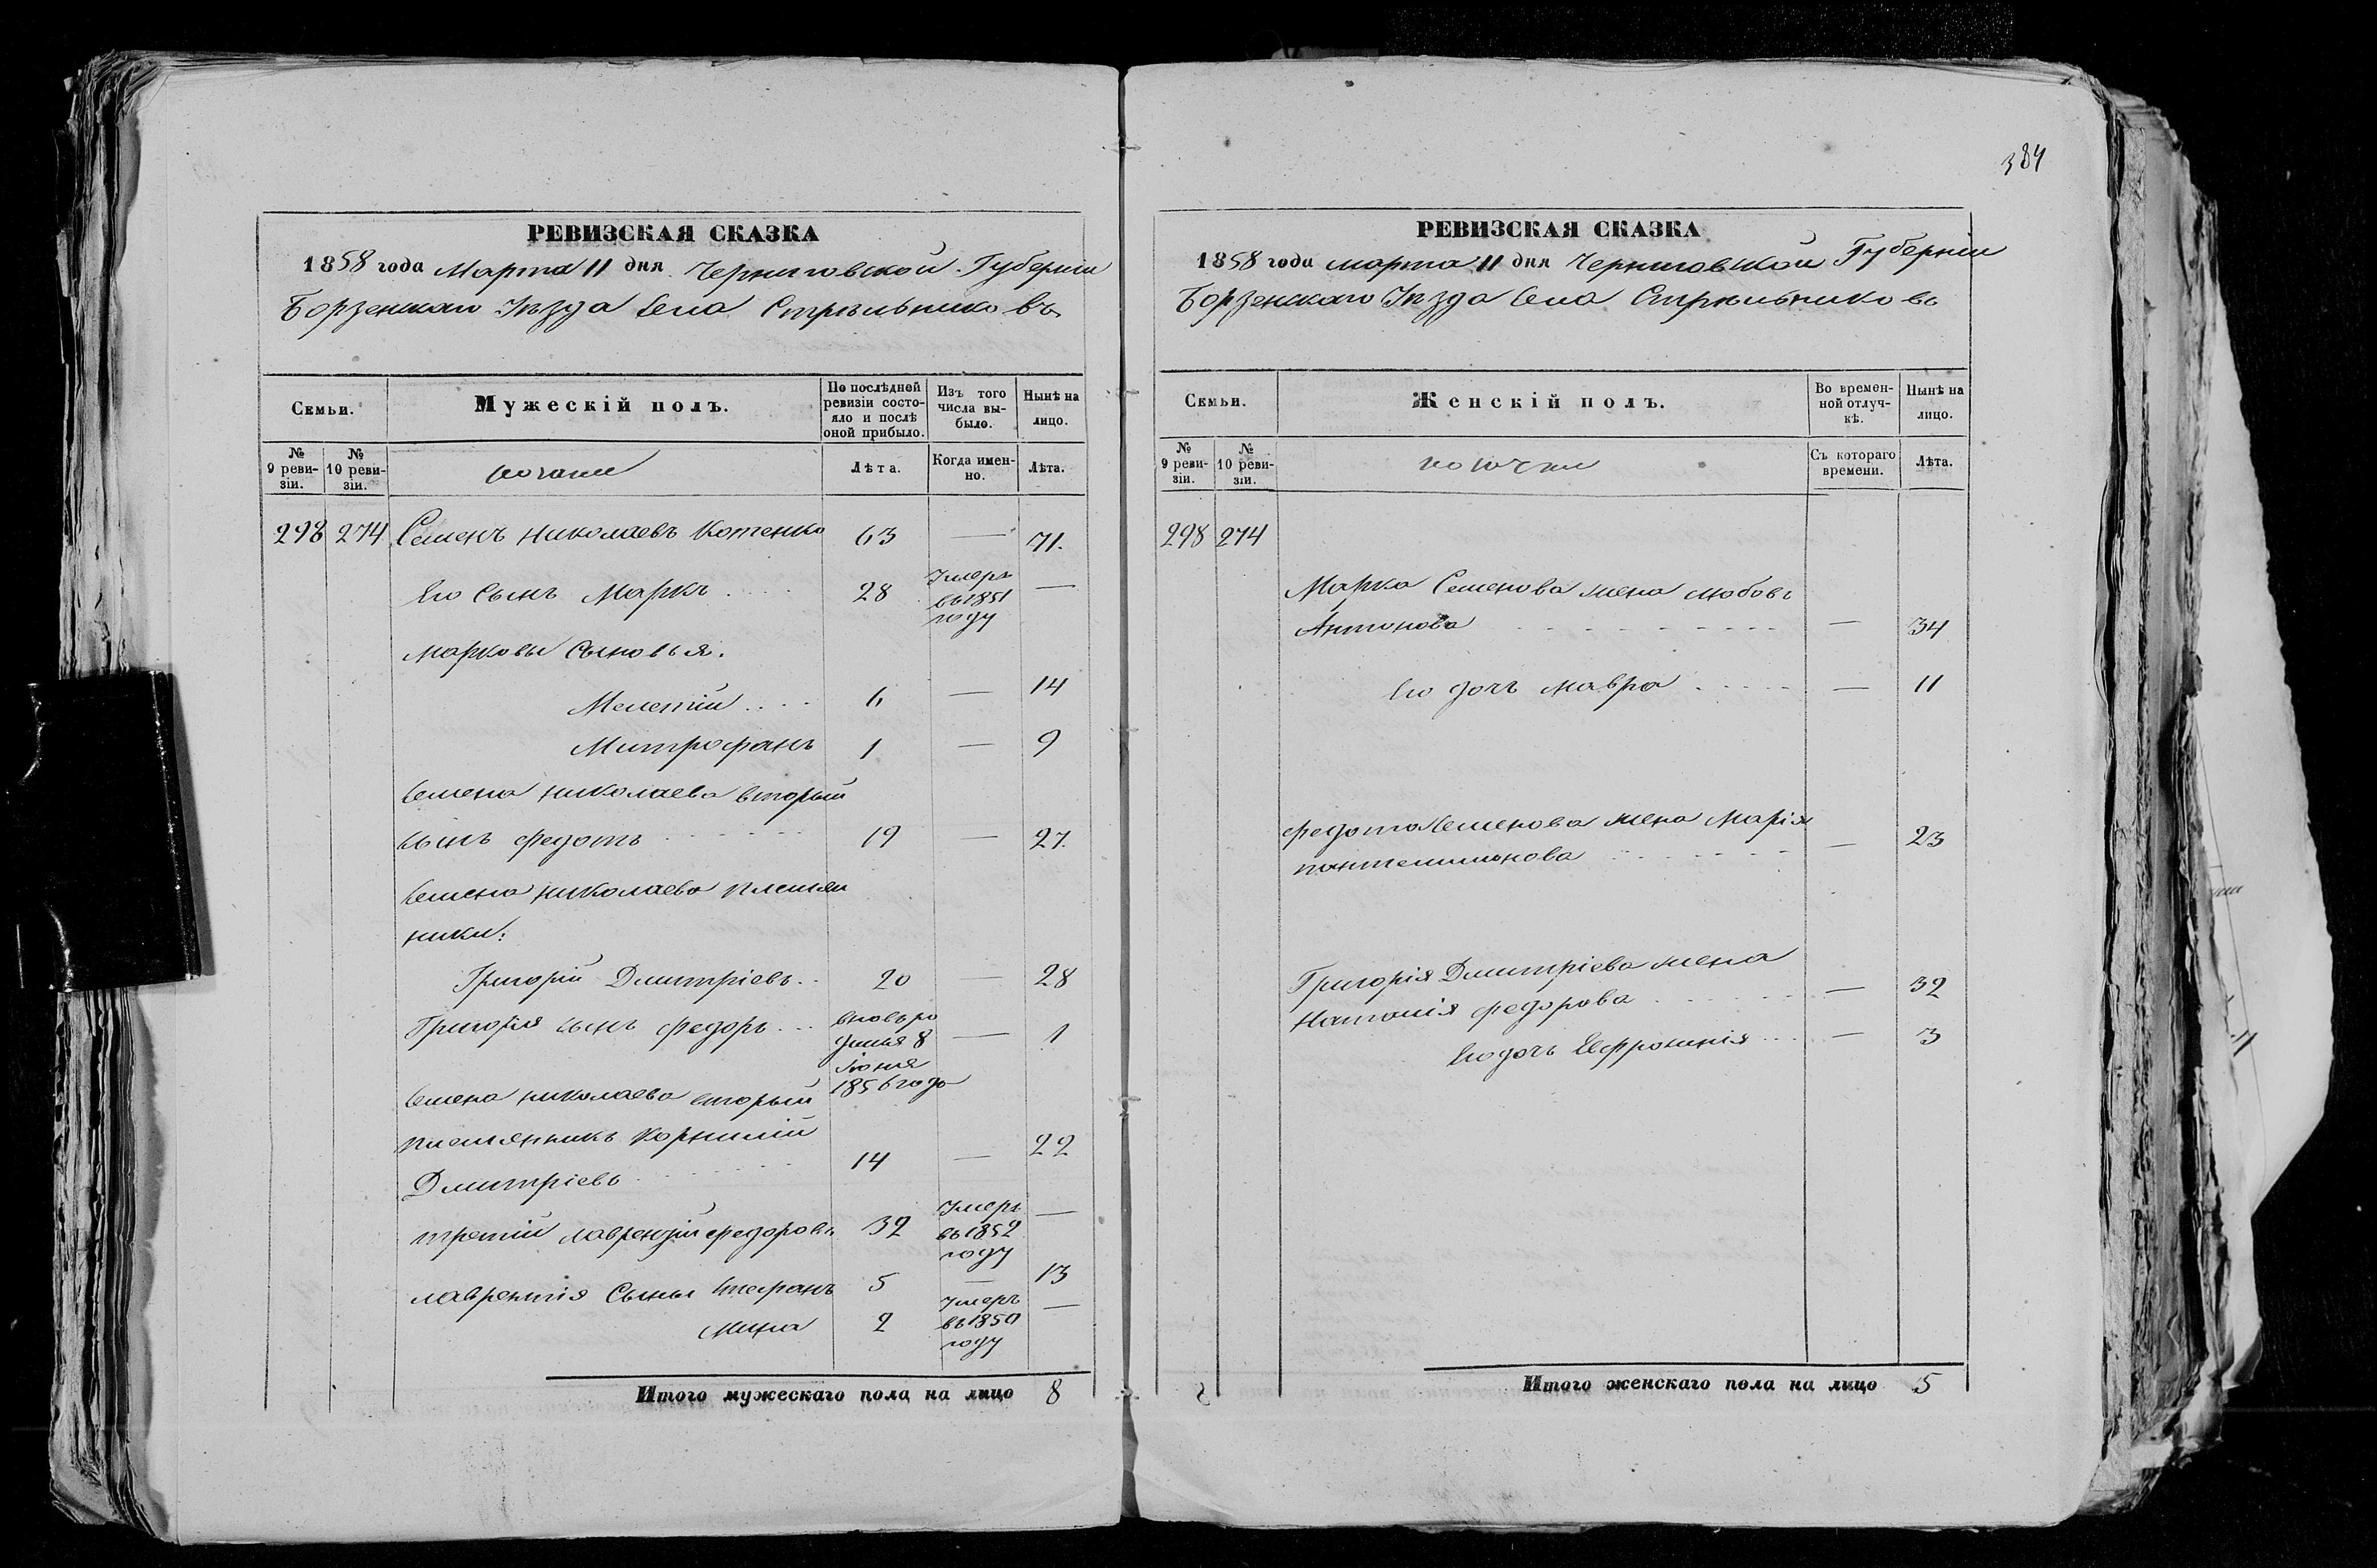 384
РЕВИЗСКАЯ СКАЗКА
1858 года Марта 11 дня Черниговской Губерніи
Борзенскаго Уѣзда Села Стрѣльниковъ
Семьи.
Мужескій полъ.
По послѣдней ревизіи состояло и послѣ оной прибыло.
Изъ того числа выбыло.
Нынѣ на лицо.
№ 9 ревизіи.
№ 10 ревизіи.
козаки
Лѣта.
Когда именно.
Лѣта.
298 274 Семенъ Николаевъ Котенко 63 — 71.
Его Сынъ Маркъ 28 Умеръ въ 1851 году —
Марковы Сыновья.
Мелетій 6 — 14
Митрофанъ 1 — 9
Семена Николаева вторый
сынъ Федотъ 19 — 27.
Семена Николаева племян
ники:
Григорій Дмитріевъ 20 — 28
Григорія сынъ Федоръ вновь ро — 1
Іюня
1856 года
Семена Николаева вторый
племянникъ Корнилій
Дмитріевъ 14 — 22
третій Лаврентій Федоровъ 32 Умеръ въ 1852 году —
Лаврентія Сыны Стефанъ 5 — 13
Мина 2 Умеръ въ 1850 году —
Итого мужескаго пола на лицо 8
РЕВИЗСКАЯ СКАЗКА
1858 года марта 11 дня Черниговской Губерніи
Борзенскаго Уѣзда Села Стрѣльниковъ
Семьи.
Женскій полъ.
Во временной отлучкѣ.
Нынѣ на лицо.
№ 9 ревизіи.
№ 10 ревизіи.
козачки
Съ котораго времени.
Лѣта.
298 274
Марка Семенова жена Любовь
Антонова — 34
Его дочь Мавра — 11
Федота Семенова жена Марія
пантелимонова — 23
Григорія Дмитріева жена
Наталія Федорова — 32
Его дочь Евфросинія — 3
Итого женскаго пола на лицо 5